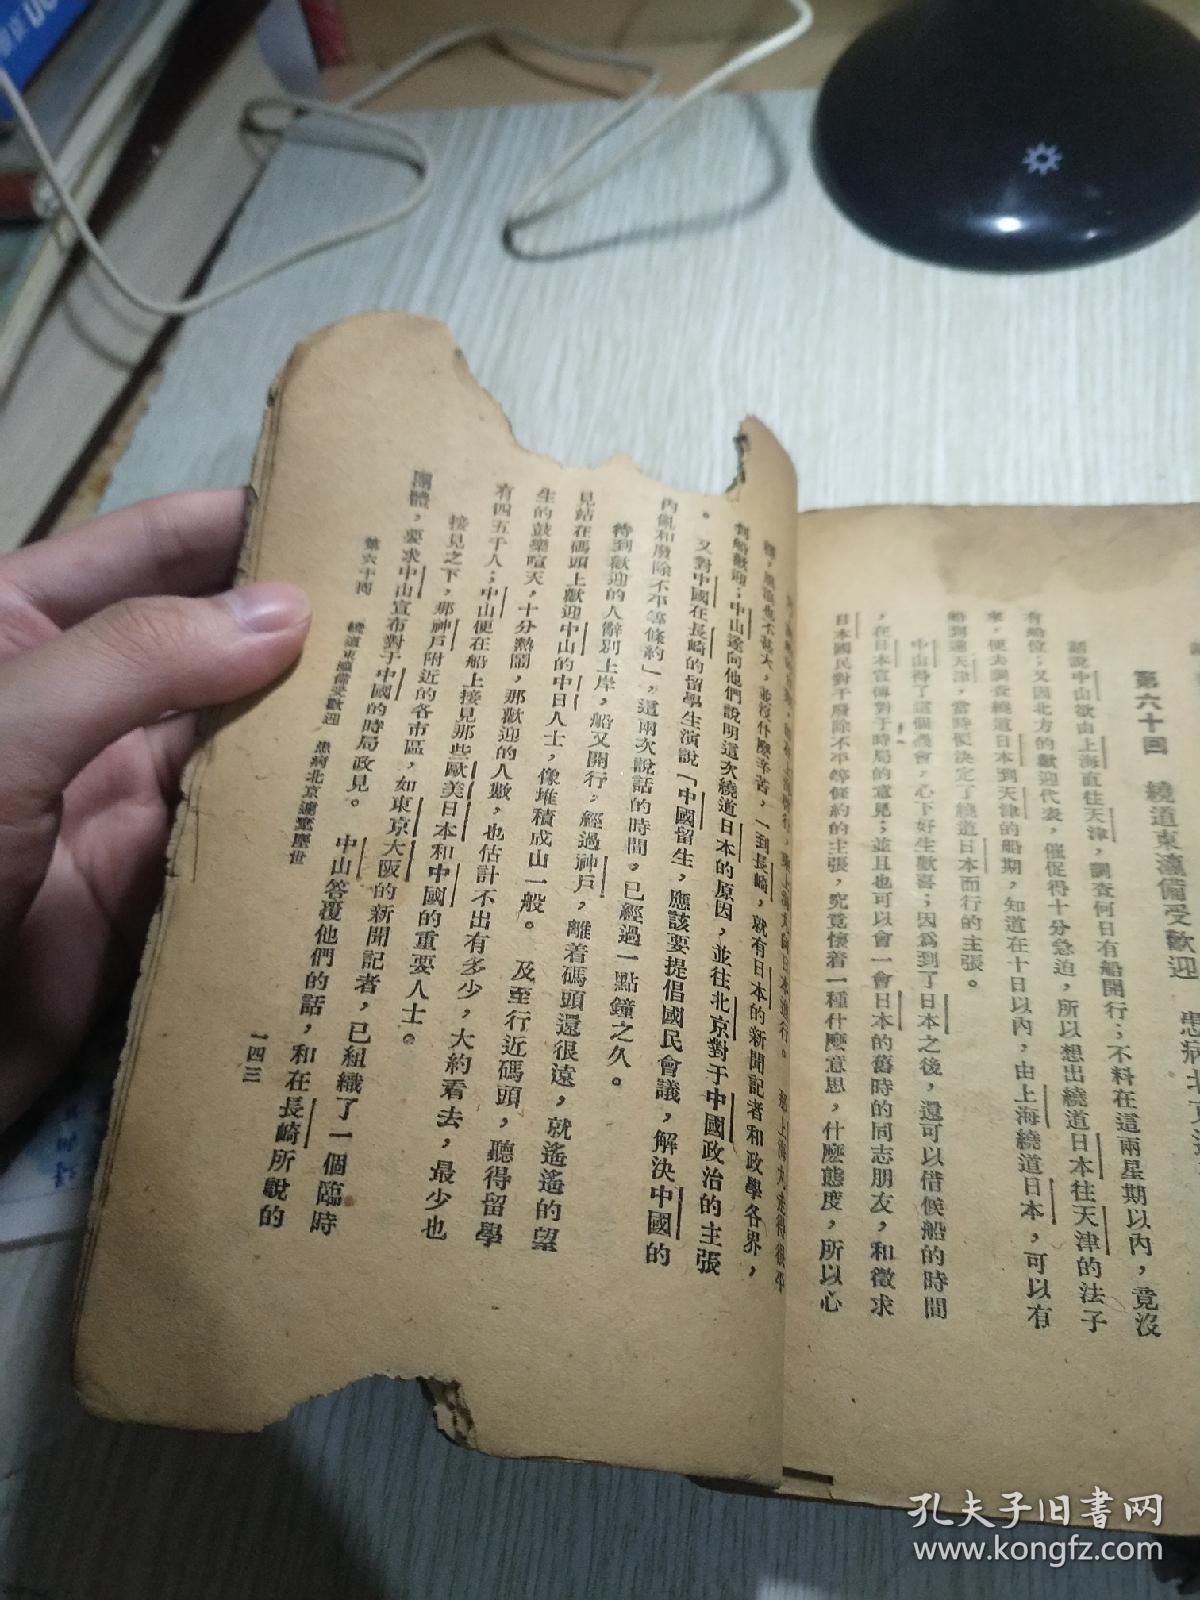 第六十回 繞道東瀛備受歡迎 患病北京
話說中山欲由上海直往天津，調查何日有船開行；不料在這兩星期以內，竟沒
有船位；又因北方的歡迎代表，催促得十分急迫，所以想出繞道日本往天津的法子
來，便去調查繞道日本到天津的船期，知道在十日以內，由上海繞道日本，可以有
船到達天津，當時便決定了繞道日本而行的主張。
中山得了這個機會，心下好生歡喜；因為到了日本之後，還可以借候船的時間
，在日本宣傳對于時局的意見；並且也可以會一會日本的舊時的同志朋友，和徵求
日本國民對于廢除不平等條約的主張，究竟懷着一種什麼意思，什麼態度，所以心
，風浪也不甚大，並沒什麼辛苦，一到長崎，就有日本的新聞記者和政學各界，
到船歡迎；中山遂向他們說明這次繞道日本的原因，並往北京對于中國政治的主張
。又對中國在長崎的留學生演說「中國留生，應該要提倡國民會議，解決中國的
內亂和廢除不平等條約」，這兩次說話的時間，已經過一點鐘之久。
待到歡迎的人辭別上岸，船又開行，經過神戶，離着碼頭還很遠，就遙遙的望
見站在碼頭上歡迎中山的中日人士，像堆積成山一般。及至行近碼頭，聽得留學
生的鼓樂喧天，十分熱鬧，那歡迎的人數，也估計不出有多少，大約看去，最少也
有四五千人；中山便在船上接見那些歐美日本和中國的重要人士。
接見之下，那神戶附近的各市區，如東京大阪的新聞記者，已組織了一個臨時
團體，要求中山宣布對于中國的時局政見。中山答覆他們的話，和在長崎所說的
第六十回 繞道東瀛備受歡迎 患病北京遽爾塵世
一四三
孔夫子旧书网
www.kongfz.com